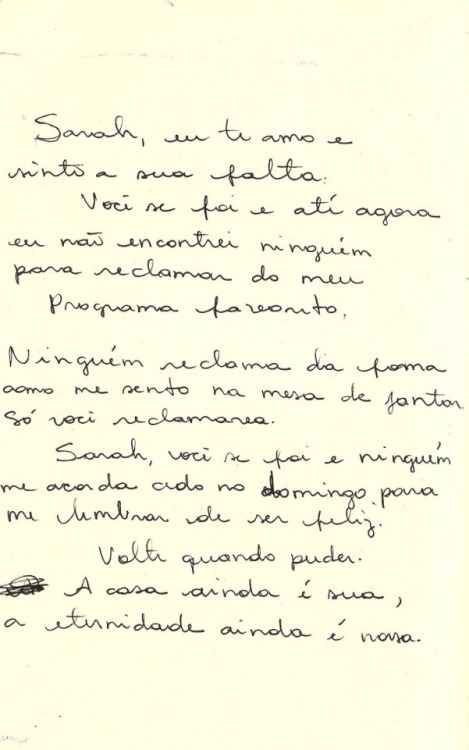 Sarah, eu te amo e
sinto a sua falta.
Você se foi e até agora
eu não encontrei ninguém
para reclamar do meu
Programa favorito.
Ninguém reclama da forma
como me sento na mesa de jantar.
Só você reclamava.
Sarah, você se foi e ninguém
me acorda cedo no domingo para
me lembrar de ser feliz.
Volte quando puder.
A casa ainda é sua,
a eternidade ainda é nossa.